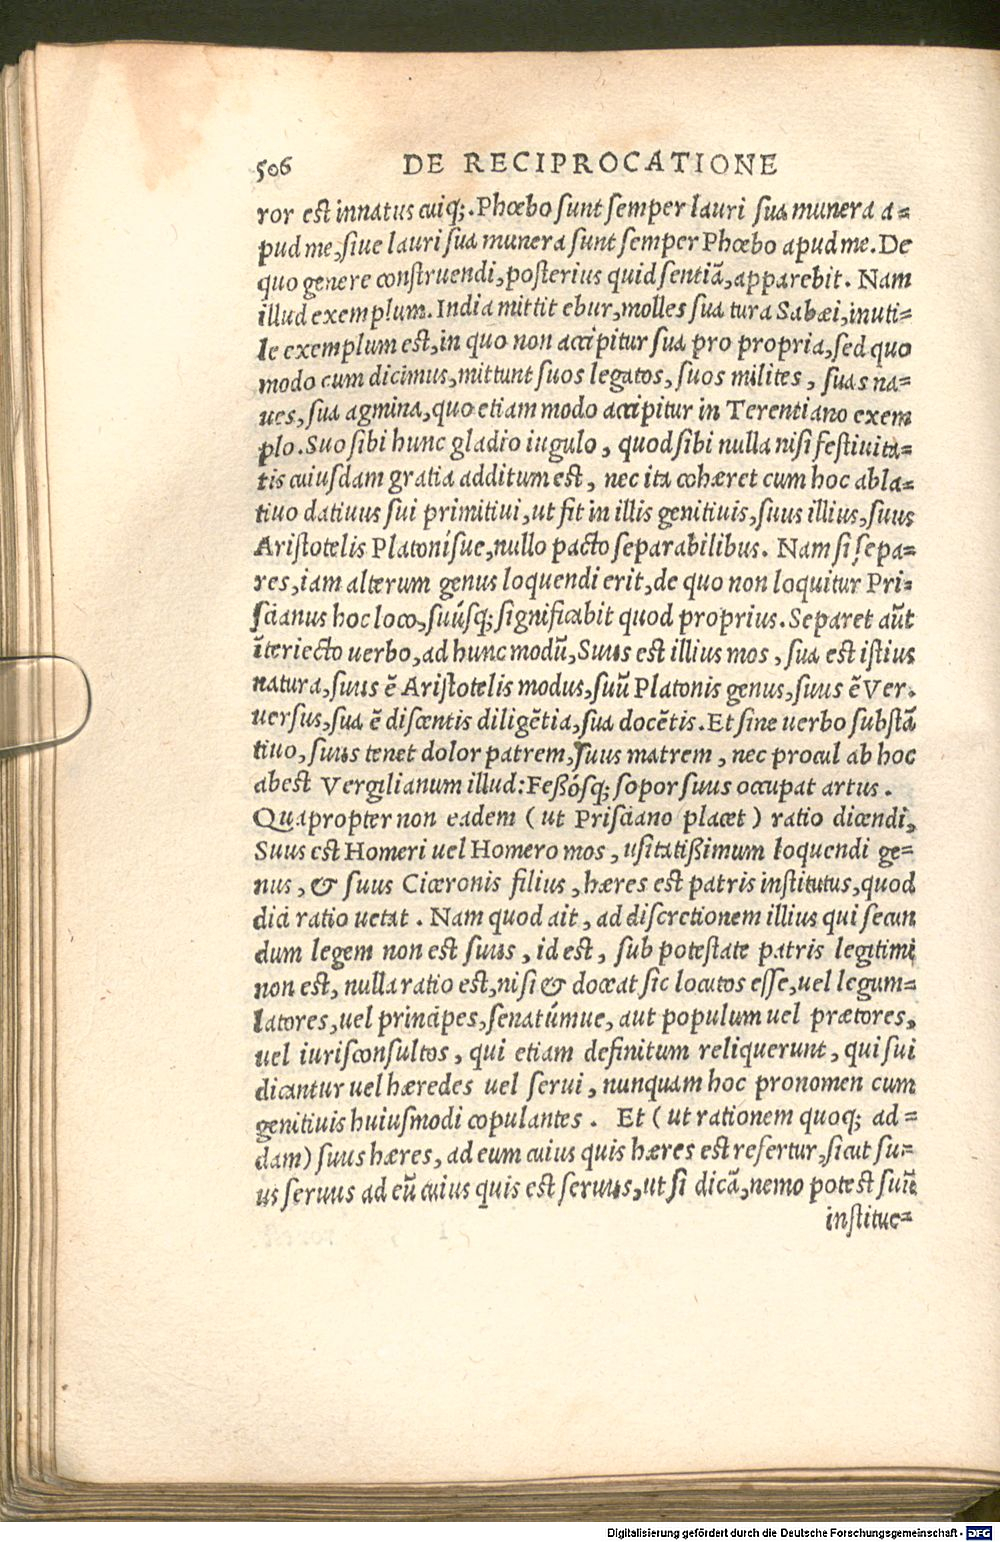 506 DE RECIPROCATIONE
ror est innatus cuiq;. Phœbo sunt semper lauri sua munera a=
pud me, siue lauri sua munera sunt semper Phœbo apud me. De
quo genere construendi, posterius quid sentiã, apparebit. Nam
illud exemplum. India mittit ebur, molles sua tura Sabæi, inuti=
le exemplum est, in quo non accipitur sua pro propria, sed quo
modo cum dicimus, mittunt suos legatos, suos milites, suas na=
ues, sua agmina, quo etiam modo accipitur in Terentiano exem
plo. Suo sibi hunc gladio iugulo, quod sibi nulla nisi festiuita=
tis cuiusdam gratia additum est, nec ita cohæret cum hoc abla=
tiuo datiuus sui primitiui, ut fit in illis genitiuis, suus illius, suus
Aristotelis Platonísue, nullo pacto separabilibus. Nam si sepa=
res, iam alterum genus loquendi erit, de quo non loquitur Pri=
scianus hoc loco, suúsq; significabit quod proprius. Separet aũt
ĩteriecto uerbo, ad hunc modũ, Suus est illius mos, sua est istius
natura, suus ẽ Aristotelis modus, suũ Platonis genus, suus ẽ Ver.
uersus, sua ẽ discentis diligẽtia, sua docẽtis. Et sine uerbo substã
tiuo, suus tenet dolor patrem, suus matrem, nec procul ab hoc
abest Vergilianum illud: Feßósq; sopor suus occupat artus.
Quapropter non eadem (ut Prisciano placet) ratio dicendi,
Suus est Homeri uel Homero mos, usitatißimum loquendi ge=
nus, & suus Ciceronis filius, hæres est patris institutus, quod
dici ratio uetat. Nam quod ait, ad discretionem illius qui secun
dum legem non est suus, id est, sub potestate patris legitimi
non est, nulla ratio est, nisi & doceat sic locutos esse, uel legum=
latores, uel principes, senatúmue, aut populum uel prætores,
uel iurisconsultos, qui etiam definitum reliquerunt, qui sui
dicantur uel hæredes uel serui, nunquam hoc pronomen cum
genitiuis huiusmodi copulantes. Et (ut rationem quoq; ad=
dam) suus hæres, ad eum cuius quis hæres est refertur, sicut su=
us seruus ad eũ cuius quis est seruus, ut si dicã, nemo potest suũ
institue=
Digitalisierung gefördert durch die Deutsche Forschungsgemeinschaft - DFG